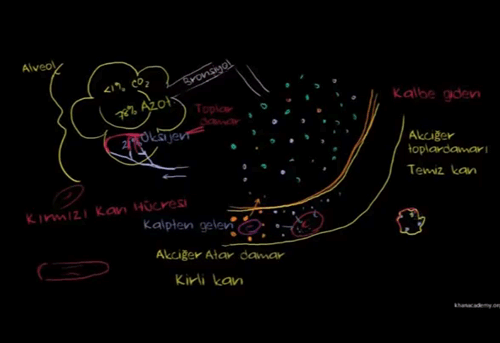 Alveol
Bronşiyol
<1% CO2
Azot
78%
Oksijen
21%
Toplar
damar
Kalbe giden
Akciğer
toplardamarı
Temiz kan
Kırmızı Kan Hücresi
Kalpten gelen
Akciğer Atar damar
Kirli kan
khanacademy.org